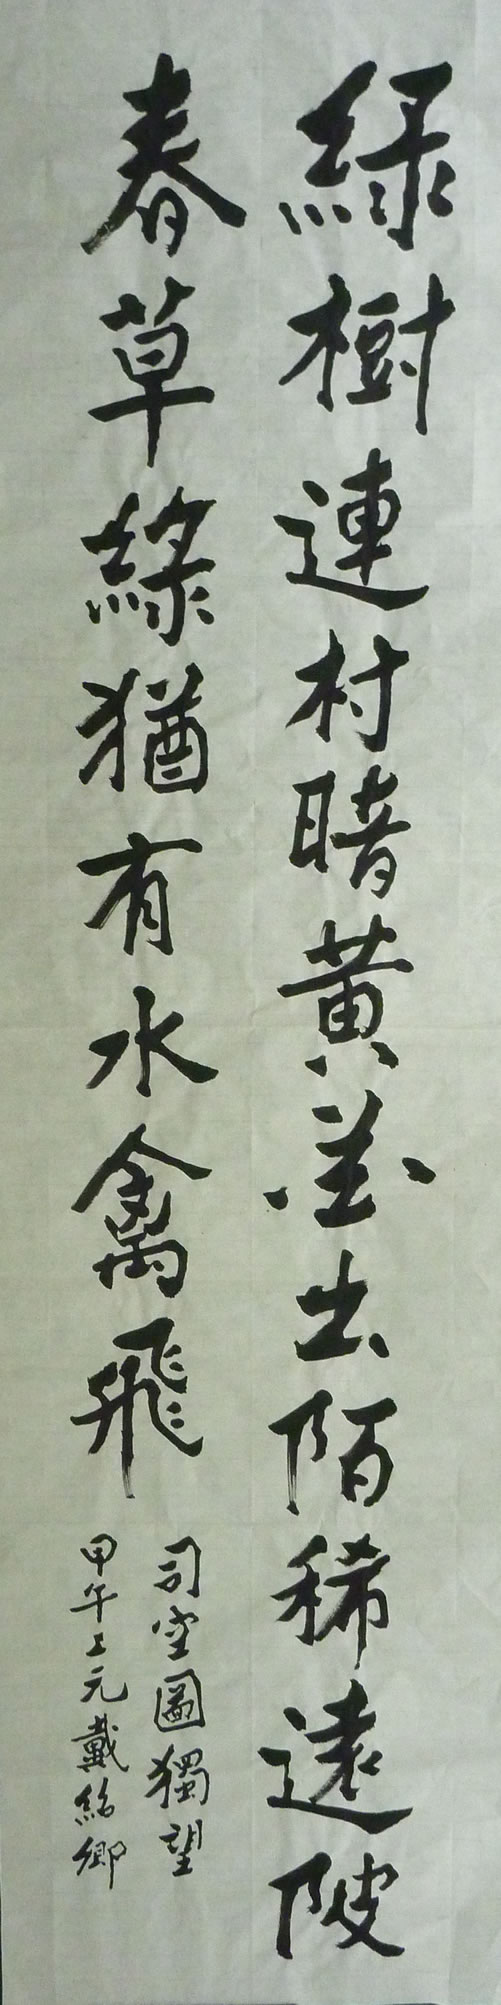 綠樹連村暗黃花出陌稀遠陂
春草綠猶有水禽飛
司空圖獨望
甲午上元戴綸鄉